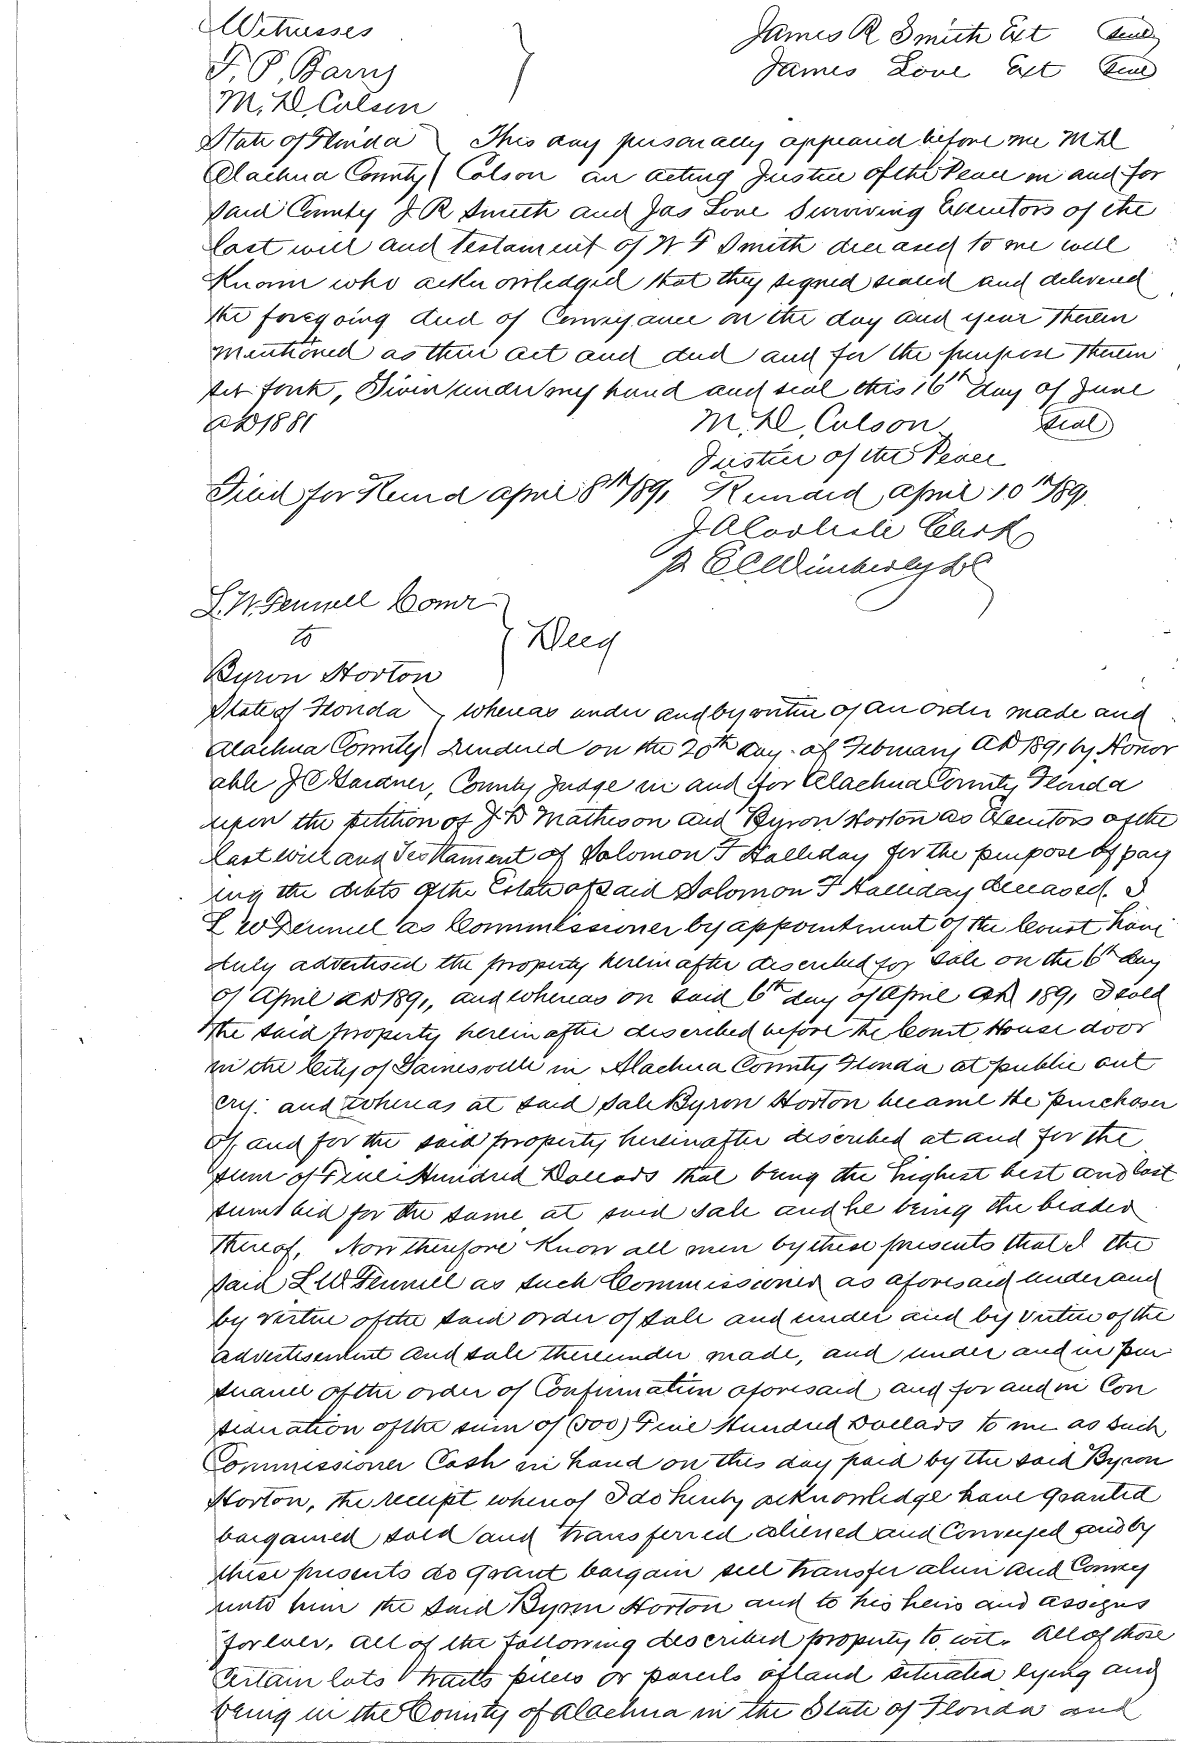 Witnesses
James R Smith Ext Seal
F. P. Barry
James Love Ext Seal
M. D. Colson
State of Florida } This day personally appeared before me M D
Alachua County } Colson an acting Justice of the Peace in and for
said County J R Smith and Jas Love Surviving Executors of the
last will and testament of W F Smith deceased to me well
Known who acknowledged that they signed sealed and delivered
the foregoing deed of Conveyance on the day and year therein
mentioned as their act and deed and for the purpose therein
set forth, Given under my hand and seal this 16th day of June
AD 1881
M. D. Colson seal
Justice of the Peace
Filed for Record April 8th 1891 Recorded April 10th 1891
J A Carlisle Clerk
pr E C Wimberly DC
L. W. Fennell Comr
to } Deed
Byron Horton
State of Florida } whereas under and by virtue of an order made and
Alachua County } Rendered on the 20th day of February AD 1891 by Honor
able J C Gardner, County Judge in and for Alachua County Florida
upon the petition of J D Matheson and Byron Horton as Executors of the
last will and Testament of Solomon F Halliday for the purpose of pay
ing the debts of the Estate of said Solomon F Halliday deceased. I
L W Fennell as Commissioner by appointment of the Court have
duly advertised the property herein after described for Sale on the 6th day
of April AD 1891, and whereas on said 6th day of April AD 1891 I sold
the said property herein after described before the Court House door
in the City of Gainesville in Alachua County Florida at public out
cry. and whereas at said Sale Byron Horton became the purchaser
of and for the said property hereinafter described at and for the
sum of Five Hundred Dollars that being the highest best and last
sum bid for the same at said sale and he being the beader
thereof, Now therefore Know all men by these presents that I the
said L W Fennell as such Commissioner as aforesaid under and
by virtue of the said order of sale and under and by virtue of the
advertisement and sale thereunder made, and under and in Pur
suance of the order of Confirmation aforesaid, and for and in Con
sideration of the sum of (500) Five Hundred Dollars to me as such
Commissioner Cash in hand on this day paid by the said Byron
Horton, the receipt whereof I do hereby acknowledge have granted
bargained sold and transferred aliened and Conveyed and by
these presents do grant bargain sell transfer alien and Convey
unto him the said Byron Horton and to his heirs and assigns
forever, all of the following described property to wit. All of those
certain lots tracts pieces or parcels of land situated lying and
being in the County of Alachua in the State of Florida and